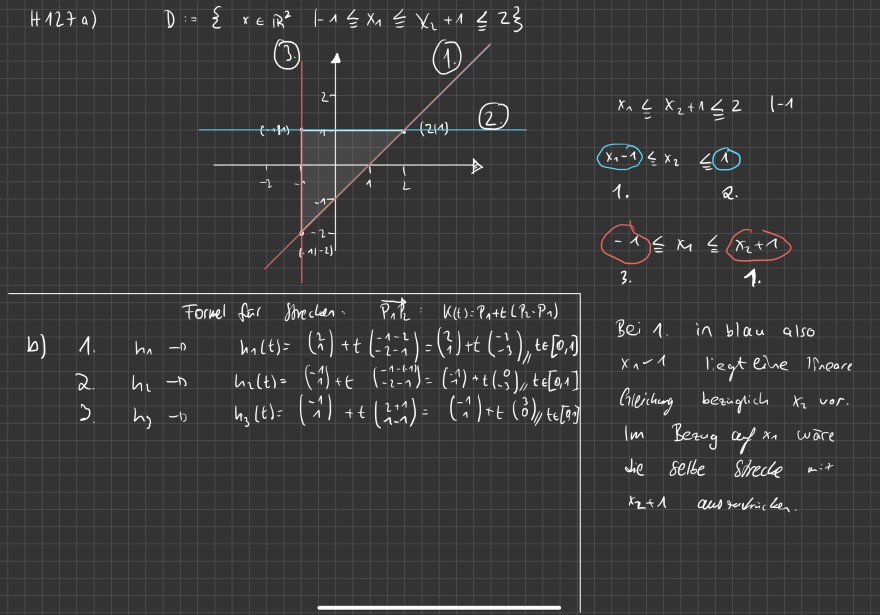 H127a) D := { x ∈ ℝ² | -1 ≤ x₁ ≤ x₂ + 1 ≤ 2}
3.
1.
2
2.
(-1|1)
1
(2|1)
-2
-1
1
2
-1
-2
(-1|-2)
x₁ ≤ x₂+1 ≤ 2 |-1
x₁-1 ≤ x₂ ≤ 1
1. 2.
-1 ≤ x₁ ≤ x₂+1
3. 1.
Formel für Strecken: P₁P₂ : K(t)=P₁+t(P₂-P₁)
b) 1. h₁ → h₁(t)= (2 1) + t (-1-2 -2-1) = (2 1) + t (-3 -3) // t∈[0,1]
2. h₂ → h₂(t)= (-1 1) + t (-1-(-1) -2-1) = (-1 1) + t (0 -3) // t∈[0,1]
3. h₃ → h₃(t)= (-1 1) + t (2+1 1-1) = (-1 1) + t (3 0) // t∈[0,1]
Bei 1. in blau also
x₁-1 liegt eine lineare
Gleichung bezüglich x₂ vor.
Im Bezug auf x₁ wäre
die selbe Strecke mit
x₂+1 auszudrücken.